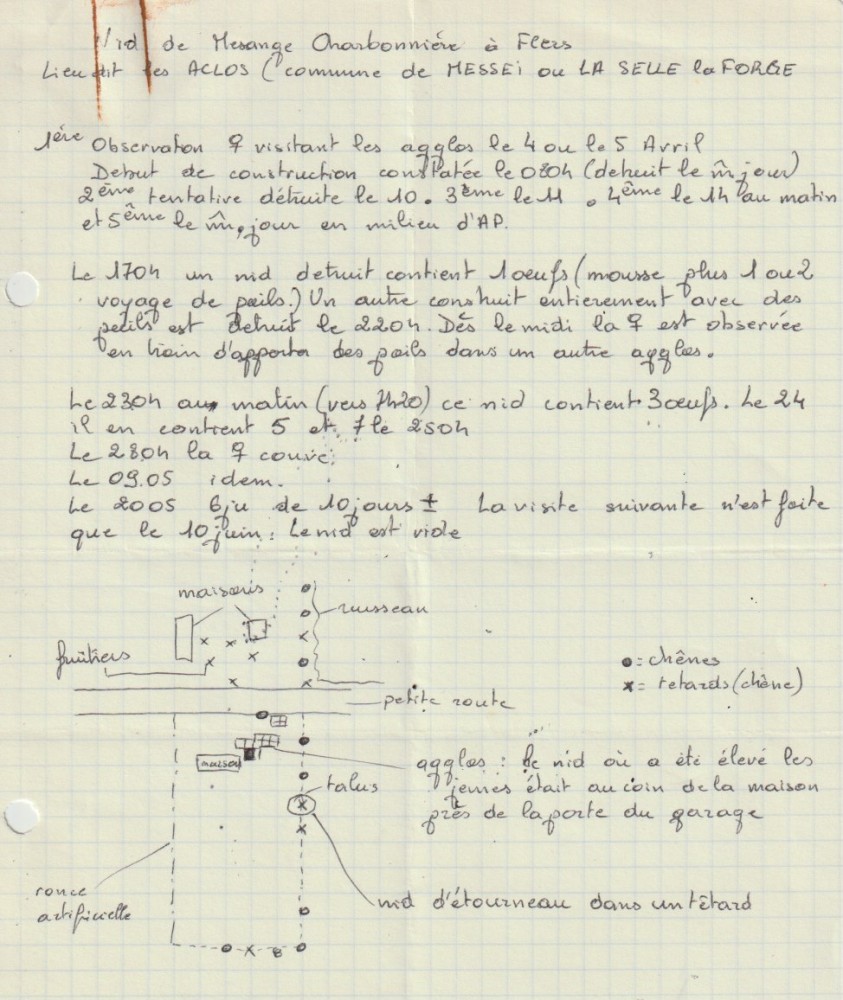 Nid de Mesange Charbonnière à Flers
Lieu dit les ACLOS (commune de MESSEi ou LA SELLE la FORGE
1ère Observation ♀ visitant les agglos le 4 ou le 5 Avril
Debut de construction constatée le 0804 (detruit le m̂ jour)
2ème tentative détruite le 10. 3ème le 11. 4ème le 14 au matin
et 5ème le m̂ jour en milieu d'AP.
Le 1704 un nid detruit contient 1 oeufs (mousse plus 1 ou 2
voyage de poils.) Un autre construit entierement avec des
poils est detruit le 2204. Dès le midi la ♀ est observée
en train d'apporter des poils dans un autre agglos.
Le 2304 au matin (vers 7h20) ce nid contient 3 oeufs. Le 24
il en contient 5 et 7 le 2504
Le 2804 la ♀ couve.
Le 09.05 idem.
Le 2005 6 ju de 10 jours ± La visite suivante n'est faite
que le 10 juin : Le nid est vide
maisons
ruisseau
fruitiers
●=chênes
x= tetards (chêne)
petite route
maison
agglos : le nid où a été élevé les
jeunes était au coin de la maison
près de la porte du garage
talus
ronce
artificielle
nid d'étourneau dans un têtard